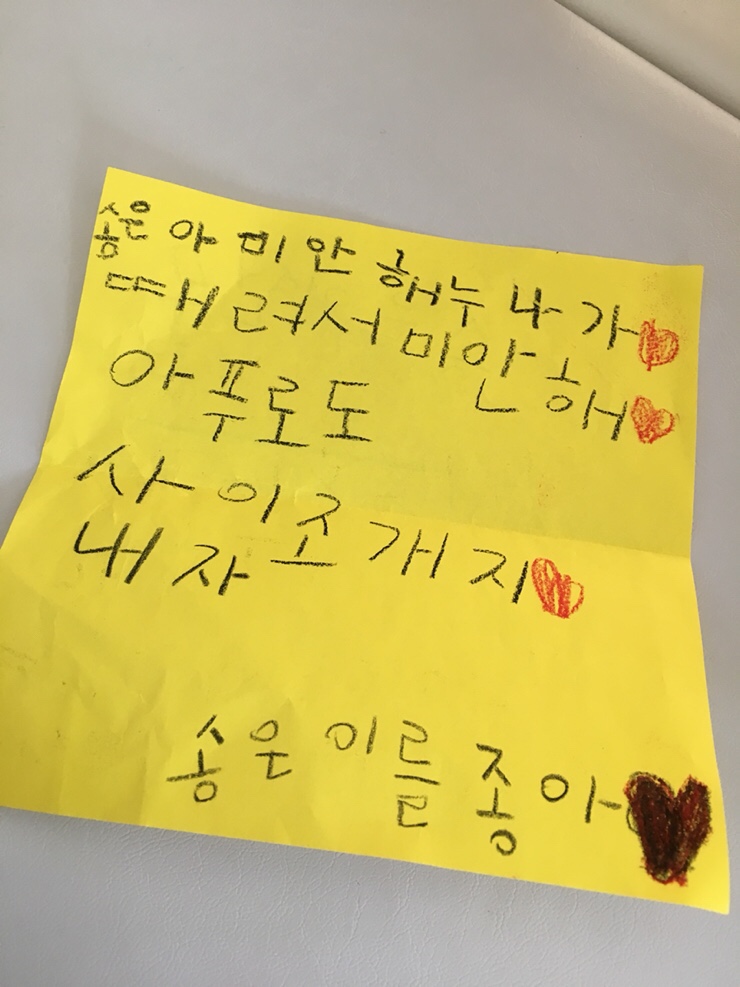 송은아 미안해누나가
때려서 미안해
아푸로도
사이조개지
내자
송은이를 종아